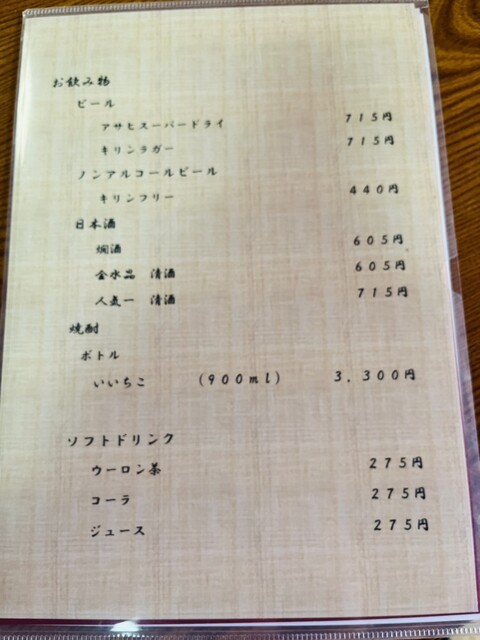 お飲み物
ビール
アサヒスーパードライ 715円
キリンラガー 715円
ノンアルコールビール
キリンフリー 440円
日本酒
燗酒 605円
金水晶 清酒 605円
人気一 清酒 715円
焼酎
ボトル
いいちこ (900ml) 3,300円
ソフトドリンク
ウーロン茶 275円
コーラ 275円
ジュース 275円